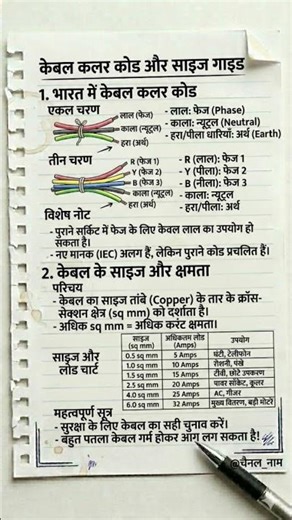 केबल कलर कोड और साइज गाइड
1. भारत में केबल कलर कोड
एकल चरण
लाल (फेज)
काला (न्यूट्रल)
हरा (अर्थ)
- लाल: फेज (Phase)
- काला: न्यूट्रल (Neutral)
- हरा/पीला धारियाँ: अर्थ (Earth)
तीन चरण
R (फेज 1)
Y (फेज 2)
B (फेज 3)
काला (न्यूट्रल)
हरा (अर्थ)
- R (लाल): फेज 1
- Y (पीला): फेज 2
- B (नीला): फेज 3
- काला: न्यूट्रल
- हरा/पीला: अर्थ
विशेष नोट
- पुराने सर्किट में फेज के लिए केवल लाल का उपयोग हो
सकता है।
- नए मानक (IEC) अलग हैं, लेकिन पुराने कोड प्रचलित हैं।
2. केबल के साइज और क्षमता
परिचय
- केबल का साइज तांबे (Copper) के तार के क्रॉस-
सेक्शन क्षेत्र (sq mm) को दर्शाता है।
- अधिक sq mm = अधिक करंट क्षमता।
साइज और
लोड चार्ट
साइज (sq mm) अधिकतम लोड (Amps) उपयोग
0.5 sq mm 5 Amps घंटी, टेलीफोन
1.0 sq mm 10 Amps रोशनी, पंखे
1.5 sq mm 15 Amps टीवी, छोटे उपकरण
2.5 sq mm 20 Amps पावर सॉकेट, कूलर
4.0 sq mm 25 Amps AC, गीजर
6.0 sq mm 32 Amps मुख्य वितरण, बड़ी मोटरें
महत्वपूर्ण सूत्र
- सुरक्षा के लिए केबल का सही चुनाव करें।
- बहुत पतला केबल गर्म होकर आग लग सकता है!
@चैनल_नाम